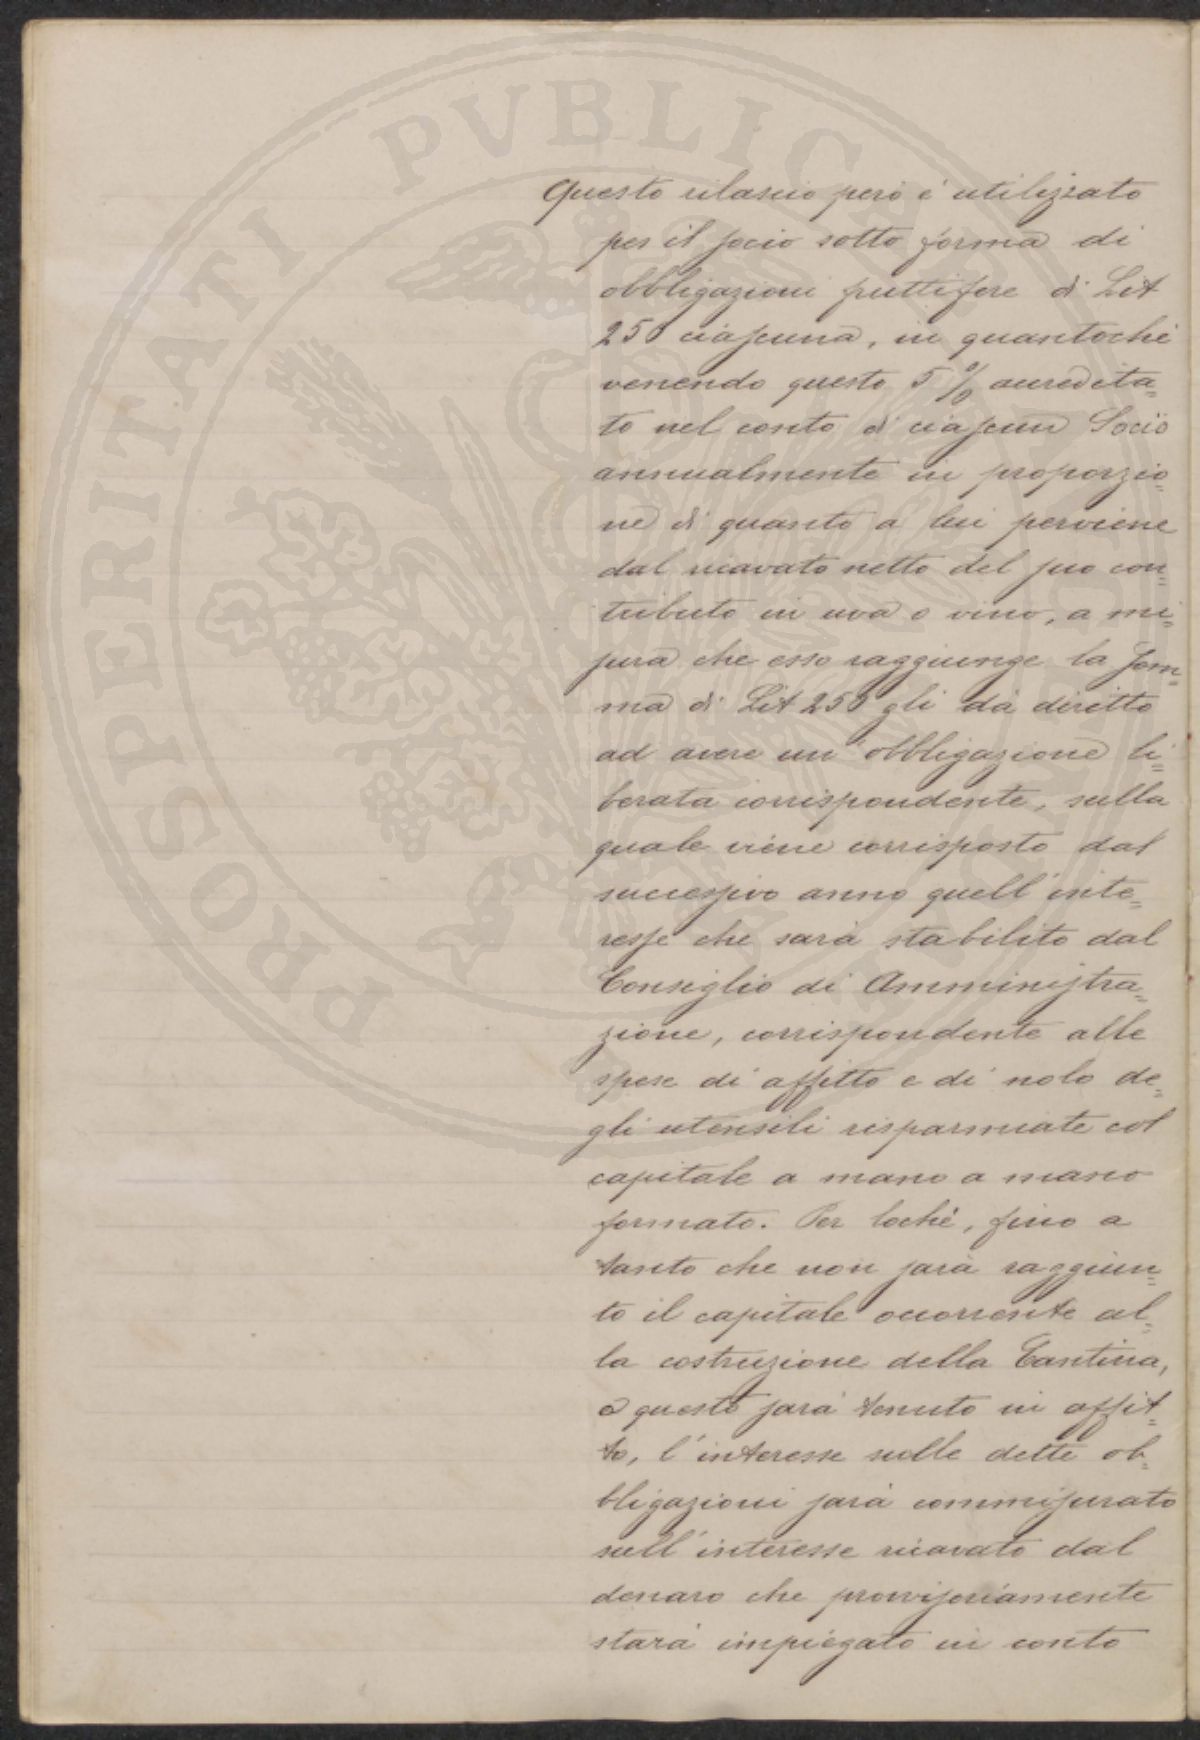 Questo rilascio però è utilizzato
per il socio sotto forma di
obbligazioni fruttifere di Lit
250 ciascuna, in quantochè
venendo questo 5 % accredita=
to nel conto di ciascun Socio
annualmente in proporzio=
ne di quanto a lui perviene
dal ricavato netto del suo con=
tributo in uva o vino, a mi=
sura che esso raggiunge la som=
ma di Lit 250 gli dà diritto
ad avere un'obbligazione li=
berata corrispondente, sulla
quale viene corrisposto dal
successivo anno quell'inte=
resse che sarà stabilito dal
Consiglio di Amministra=
zione, corrispondente alle
spese di affitto e di nolo de=
gli utensili risparmiate col
capitale a mano a mano
formato. Per lochè, fino a
tanto che non sarà raggiun=
to il capitale occorrente al=
la costruzione della Cantina,
e questo sarà tenuto in affit=
to, l'interesse sulle dette ob=
bligazioni sarà commisurato
sull'interesse ricavato dal
denaro che provvisoriamente
starà impiegato in conto
PROSPERITATI PVBLICAE